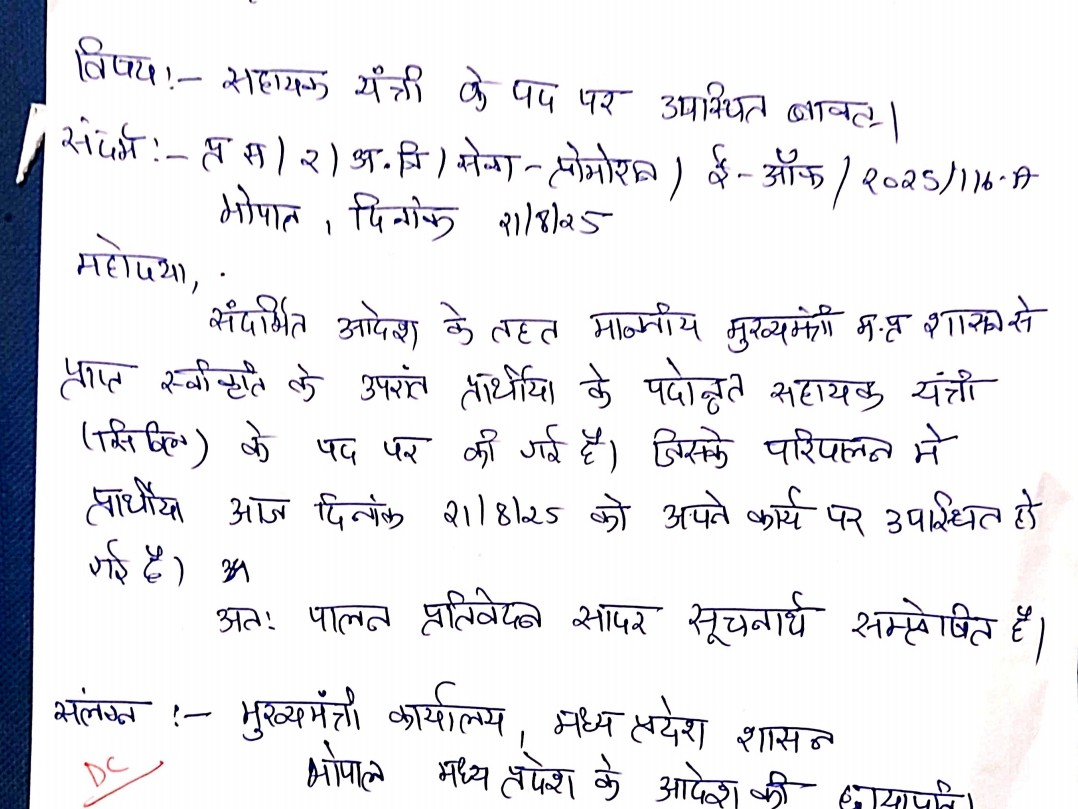 विषय:- सहायक यंत्री के पद पर उपस्थित बावत।
संदर्भ:- प्र स / २ / अ.त्रि / सेवा - प्रोमोशन / ई-ऑफ / २०२५/116-A
भोपाल, दिनांक २1/8/२5
महोदया,
संदर्भित आदेश के तहत माननीय मुख्यमंत्री म.प्र शासन से
प्राप्त स्वीकृति के उपरांत प्रार्थीया के पदोन्नत सहायक यंत्री
(सिविल) के पद पर की गई है। जिसके परिपालन मे
प्रार्थीया आज दिनांक २1/8/२5 को अपने कार्य पर उपस्थित हो
गई है।
अतः पालन प्रतिवेदन सादर सूचनार्थ सम्प्रेषित है।
संलग्न :- मुख्यमंत्री कार्यालय, मध्य प्रदेश शासन
भोपाल मध्य प्रदेश के आदेश की छायाप्रति।
DC